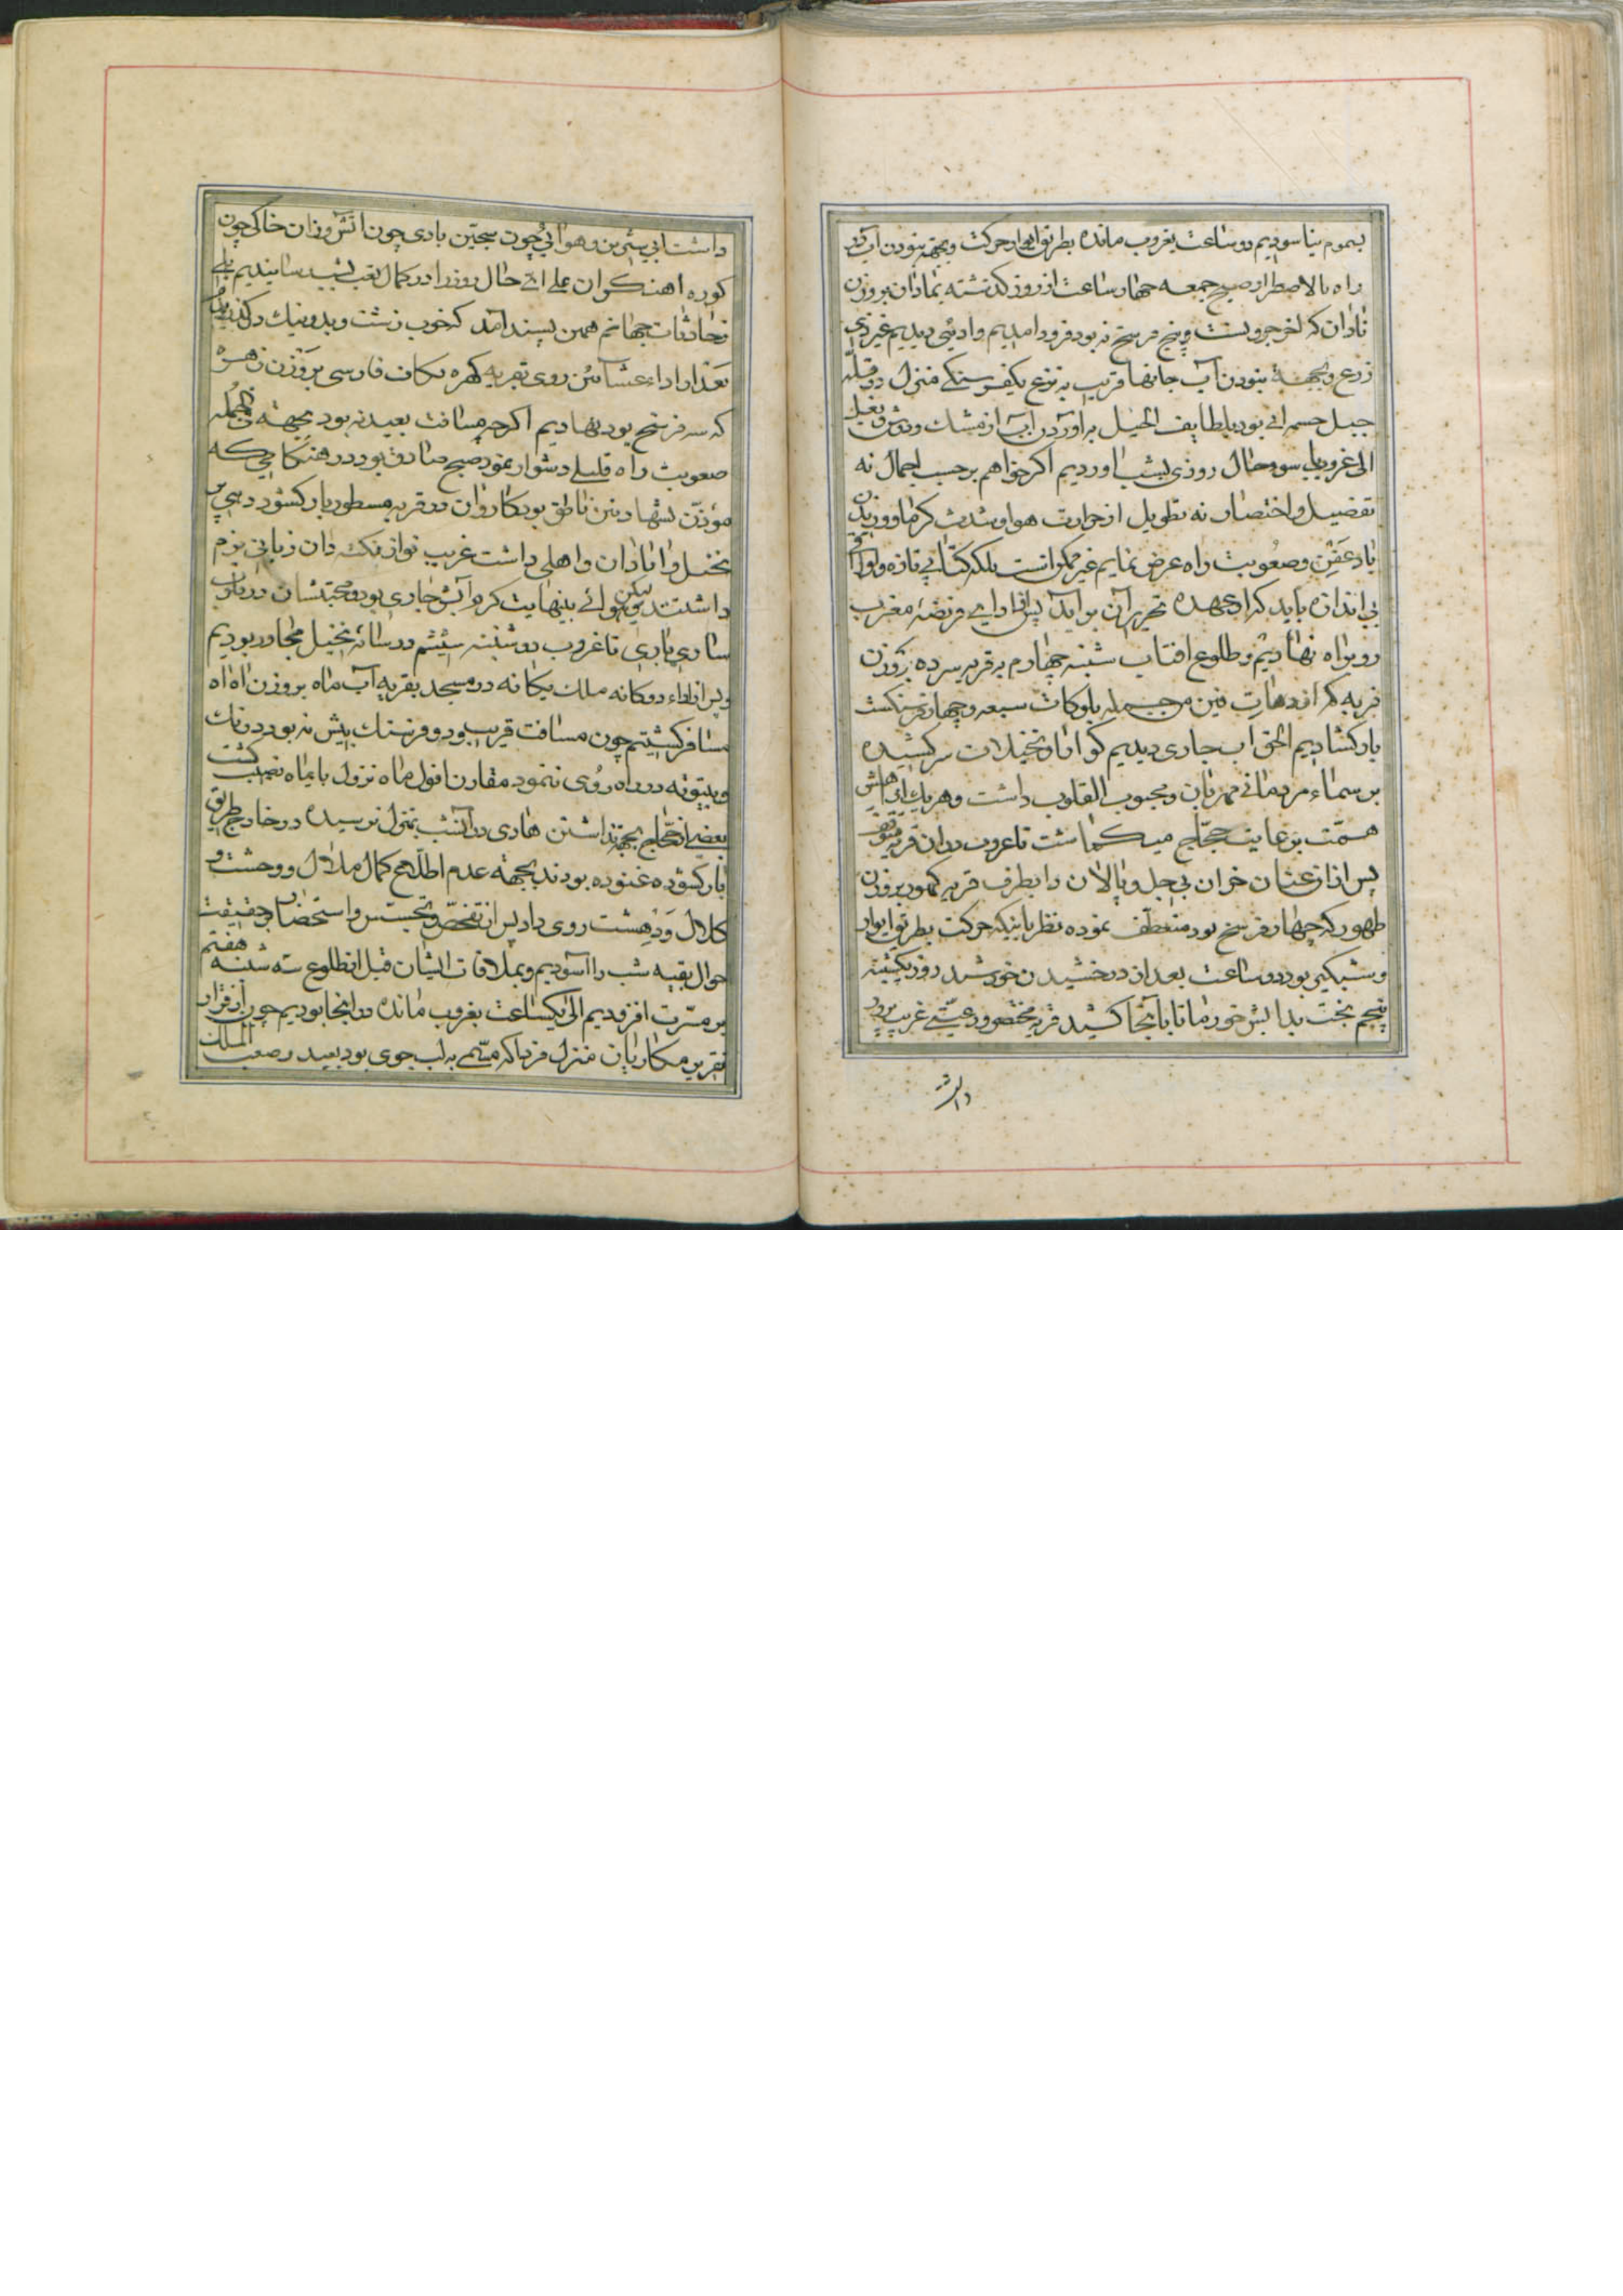 بسموم نیاسودیم دو ساعت بغروب مانده بطریق حرکت وبجهة نبودن آب در
راه بالاضطرار صبح جمعه چهار ساعت از روز کذشته بماذان بروزن
ناذان که لخرجو وبیست وپنج فرسخ نه بود فرود امدیم وادیئی دیدیم غیر ذی
زرع وبجهة نبودن آب جانها قریب به نزع یکفرسنکے منزل در قلّه
جبل چسمه ائی بود بلطایف الحیل به آوردن آب از مشک ودوش وبغل
الی غروب سوء حال روزی بشب اوردیم اکر خواهم برحسب اجمال نه
تفضیل واختصار نه تطویل از حرارت هوا وشدت کرما ووزیدن
باد عَفِن وصعُوبت راه عرض نمایم غیر ممکن است بلکه کتابی تازه
بی اندازه باید که از عهدهٔ تحریر آن بر آید پس از ادای فریضهٔ مغرب
رو براه نهادیم وطلوع افتاب شنبه چهارم به قریه سرده بروزن
قریه که از دهات فین من جمله بلوکات سبعه وچهار فرسنکست
بارکشادیم الحق اب جاری دیدیم کوارا ونخیلات سرکشیده
بر سماء مردمانی مهربان ومحبوب القلوب داشت وهر یک از اهالیش
همّت برعایت حجّاج میکماشت تا غروب در ان قریه متوقف
پس از اذان عشا خران بی جل وپالان را بطرف قریه کهور بروزن
طهور که چهار فرسخ بود منعطف نموده نظر باینکه حرکت بطریق ایوار
وشبکیر بود دو ساعت بعد از درخشیدن خورشید روز یکشنبه
پنجم بخت بدآبش خور ما را بآنجا کشید قریه مختصر ورعیّتی غریب پرور
داشت
داشت ابی شیرین وهوائی چون سجّین بادی چون اتش وزان خاکی چون
کوره اهنکران علی ایّ حال روز را در کمال تعب بشب رسانیدیم بلی
زحادثات جهانم همین پسند آمد که خوب زشت وبد ونیک در کذر
بعد از اداء عشائین روی بقریه کهره بکاف فارسی بروزن زهره
که سه فرسخ بود نهادیم اکرچه مسافت بعید نه بود بجهته فی الجمله
صعوبت راه قلیلے دشوار نمود صبح صادق بود در هنکامی که
موذّن بشهادتین ناطق بود کاروان در قریه مسطور بارکشود دهی پر
نخیل وانادان واهلی داشت غریب نواز نکته دان زبانی بزم
داشتند لیکن هوائے بینهایت کرم وآبش جاری بود ومحبتشان در
ساری باری تا غروب دوشنبه ششم در سائهٔ نخیل مجاور بودیم
وپس از اداء دوکانه ملک یکانه در مسجد بقریه آب ماه بروزن اه اه
مسافر کشتیم چون مسافت قریب بود و فرسنک بیش نه بود درنک
وبیتوته در راه روُی ننمود مقارن افول ماه نزول بآبماه نصیب کشت
بعضے از حجّاج بجهته نداشتن هادی در آنشب بمنزل نرسیده در خارج طریق
بارکشوده غنوده بودند بجهتهٔ عدم اطلاع کمال ملال و وحشت و
کلال ودهشت روی داد پس از تفحّص وتجسّس واستحضار بحقیقت
حوال بقیه شب را آسودیم وبملاقات ایشان قبل از طلوع سه شنبه هفتم
بر مسّرت افزودیم الی یکساعت بغروب مانده در اینجا بودیم چون از قرار
تقریر مکاریان منزل فردا که مسّمے به لب جوی بود بعید وصعب المسلک